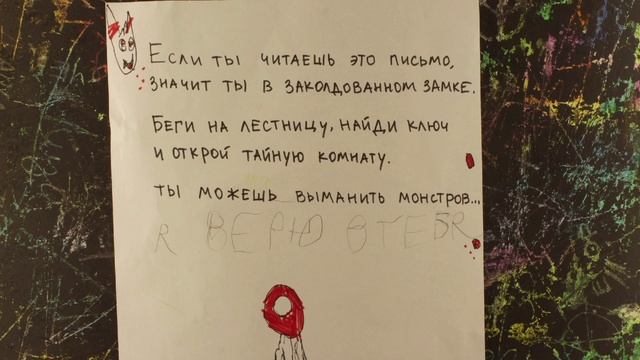 Если ты читаешь это письмо,
значит ты в заколдованном замке.
Беги на лестницу, найди ключ
и открой тайную комнату.
Ты можешь выманить монстров...
Я ВЕРЮ ВТЕБЯ